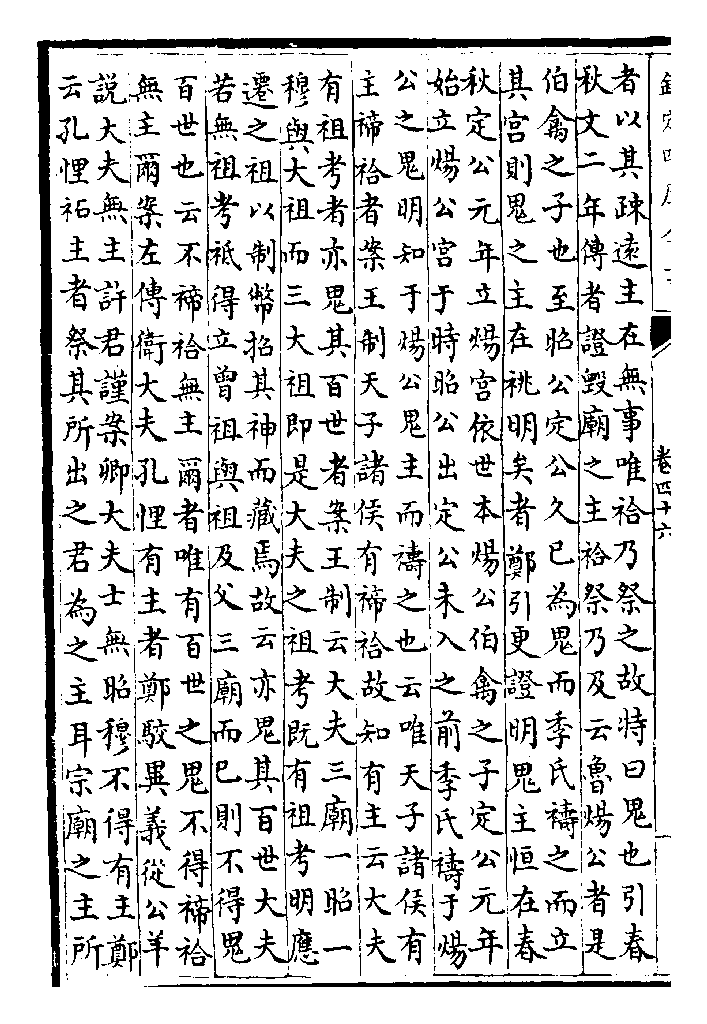 卷四十六
者以其疎遠主在無事唯祫乃祭之故特曰鬼也引春
秋文二年傳者證毀廟之主祫祭乃及云魯煬公者是
伯禽之子也至昭公定公久已為鬼而季氏禱之而立
其宮則鬼之主在祧明矣者鄭引更證明鬼主恒在春
秋定公元年立煬宮依世本煬公伯禽之子定公元年
始立煬公宮于時昭公出定公未入之前季氏禱于煬
公之鬼明知于煬公鬼主而禱之也云唯天子諸侯有
主禘祫者案王制天子諸侯有禘祫故知有主云大夫
有祖考者亦鬼其百世者案王制云大夫三廟一昭一
穆與大祖而三大祖即是大夫之祖考既有祖考明應
遷之祖以制幣招其神而藏焉故云亦鬼其百世大夫
若無祖考祗得立曽祖與祖及父三廟而已則不得鬼
百世也云不禘祫無主爾者唯有百世之鬼不得禘祫
無主爾案左傳衛大夫孔悝有主者鄭駮異義從公羊
說大夫無主許君謹案卿大夫士無昭穆不得有主鄭
云孔悝祏主者祭其所出之君為之主耳宗廟之主所